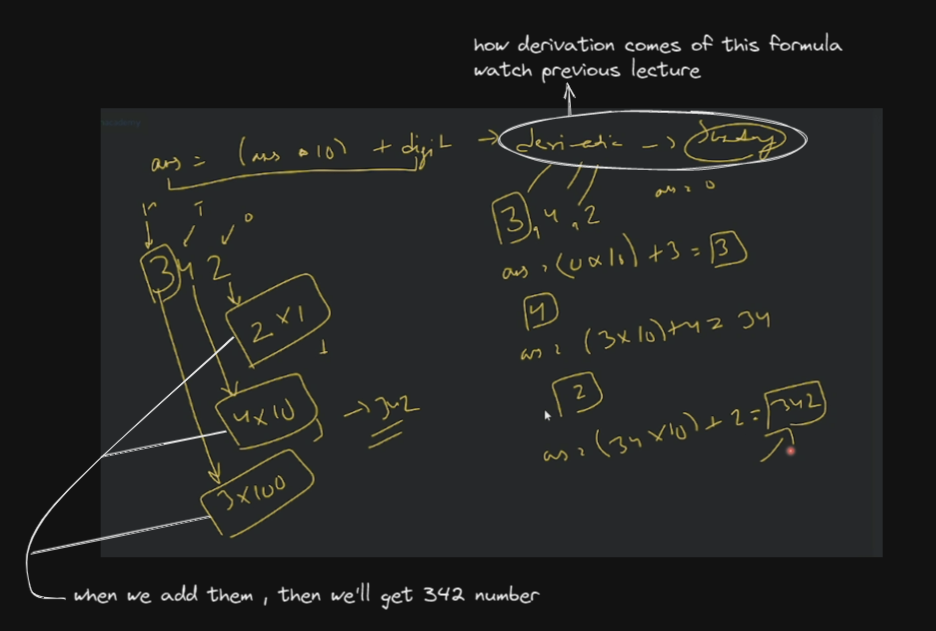 how derivation comes of this formula
watch previous lecture
ans = (ans * 10) + digit → derivatic →
H T O
342
2 x 1
1
4 x 10 → 342
3 x 100
ans = 0
3, 4, 2
ans = (0 x 10) + 3 = 3
4
ans = (3 x 10) + 4 = 34
2
ans = (34 x 10) + 2 = 342
when we add them , then we'll get 342 number